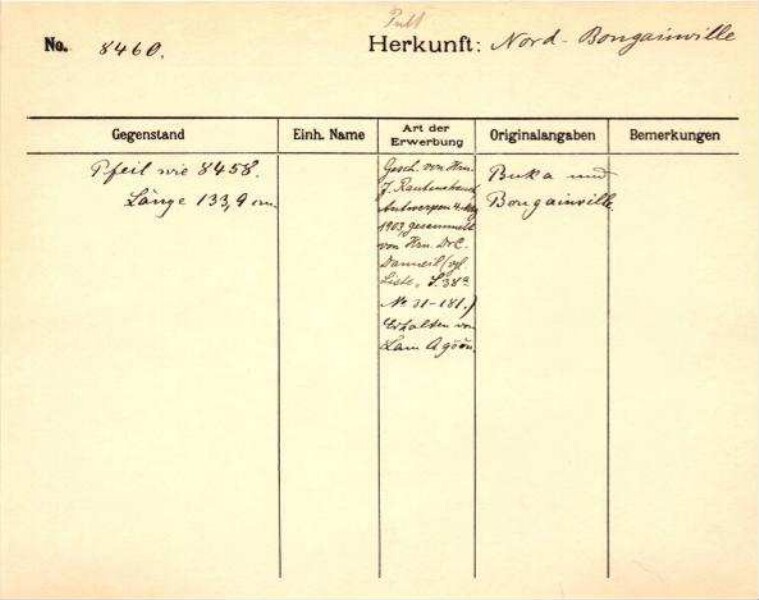 No. 8460.
Herkunft: Nord-Bougainville
Gegenstand
Einh. Name
Art der Erwerbung
Originalangaben
Bemerkungen
Pfeil wie 8458.
Länge 133,9 cm.
Gesch. von Hrn.
J. Rautenstrauch
Antwerpen 4. May
1903, gesammelt
von Hrn. Dr. C.
Danneil (vgl.
Liste, S. 38a
No 31-181.)
Erhalten von
Lam Agöön.
Buka und
Bougainville.